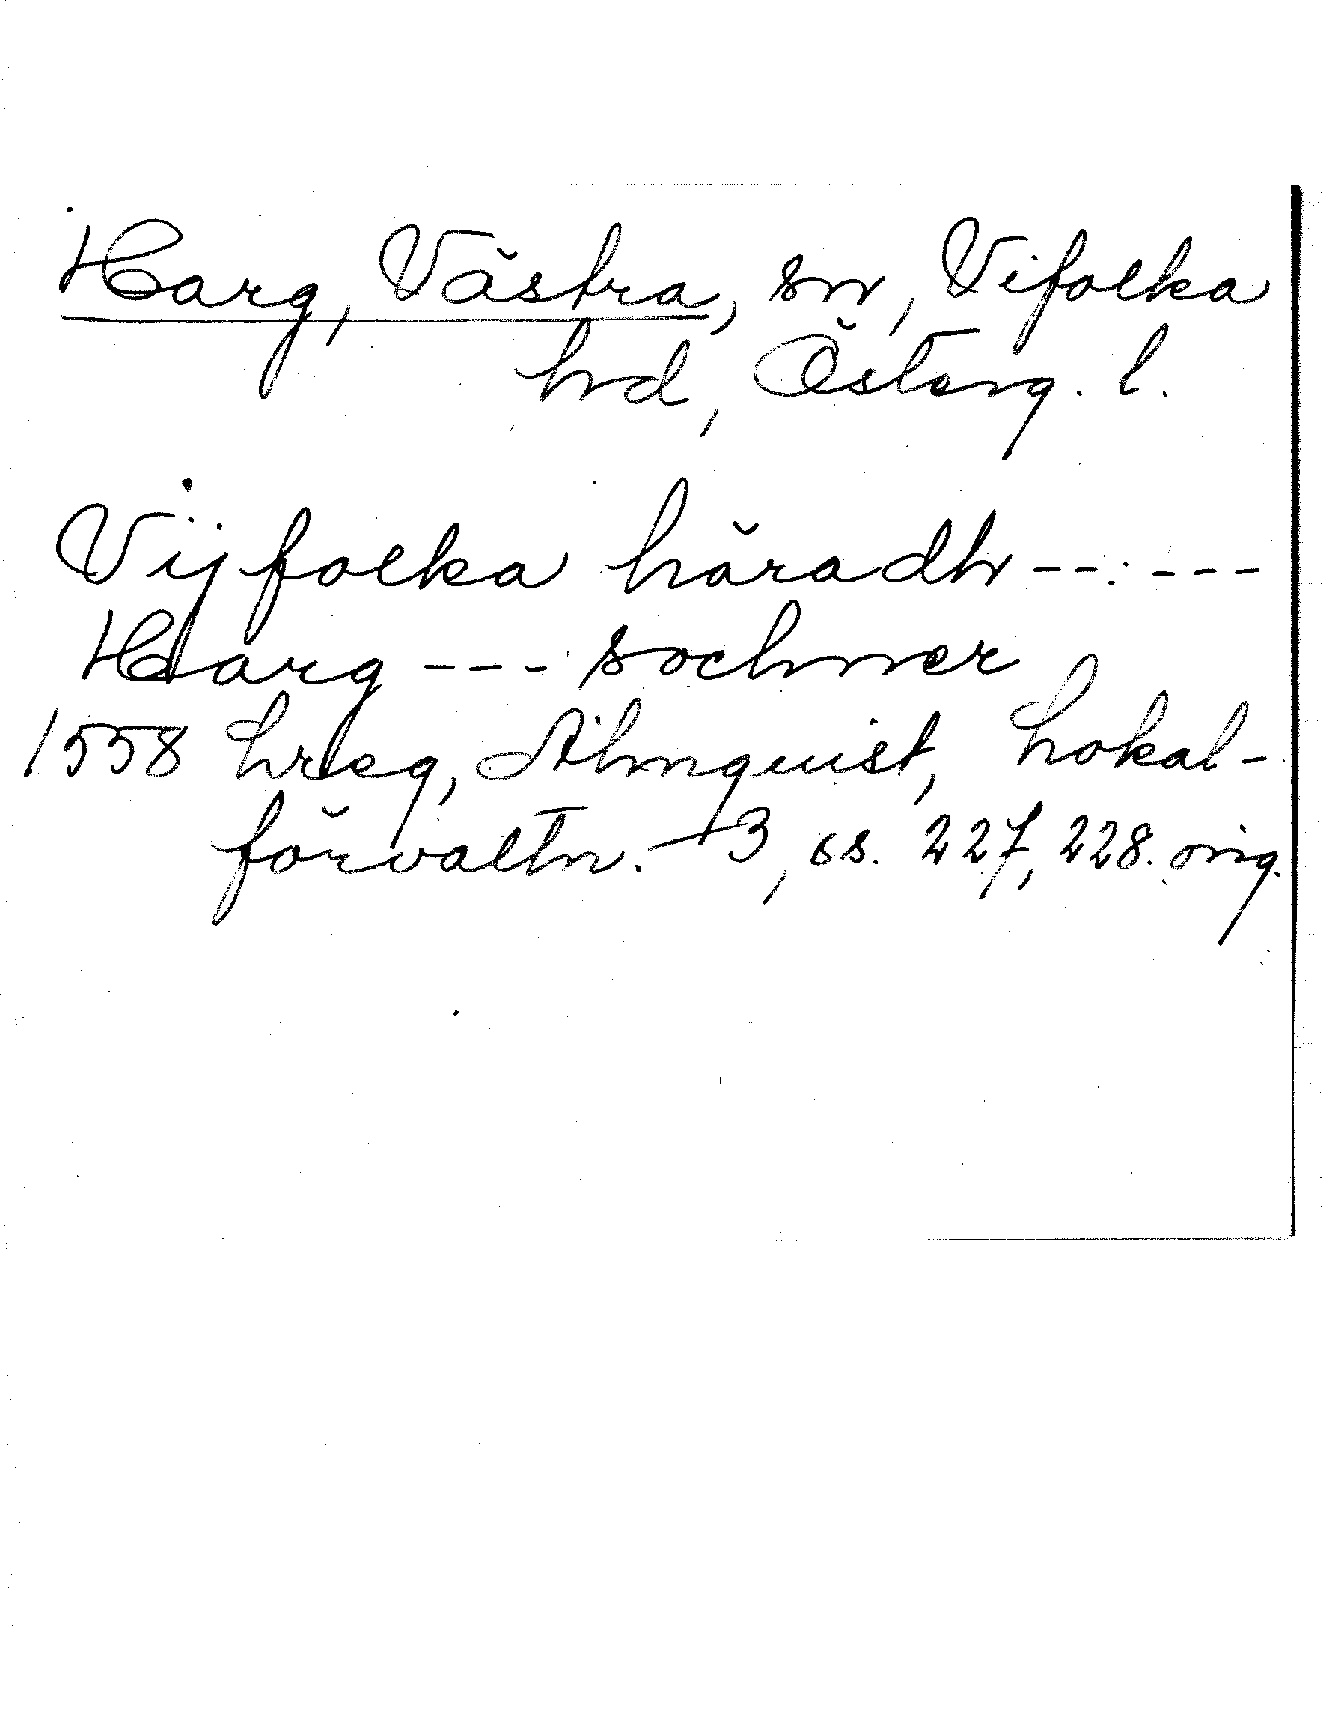 Harg, Västra, sn, Vifolka
hd, Österg. l.
Vijfolka häradh -----
Harg --- sochner
1558 hreg, Almquist, Lokal-
förvaltn. 3, ss. 227, 228. orig.